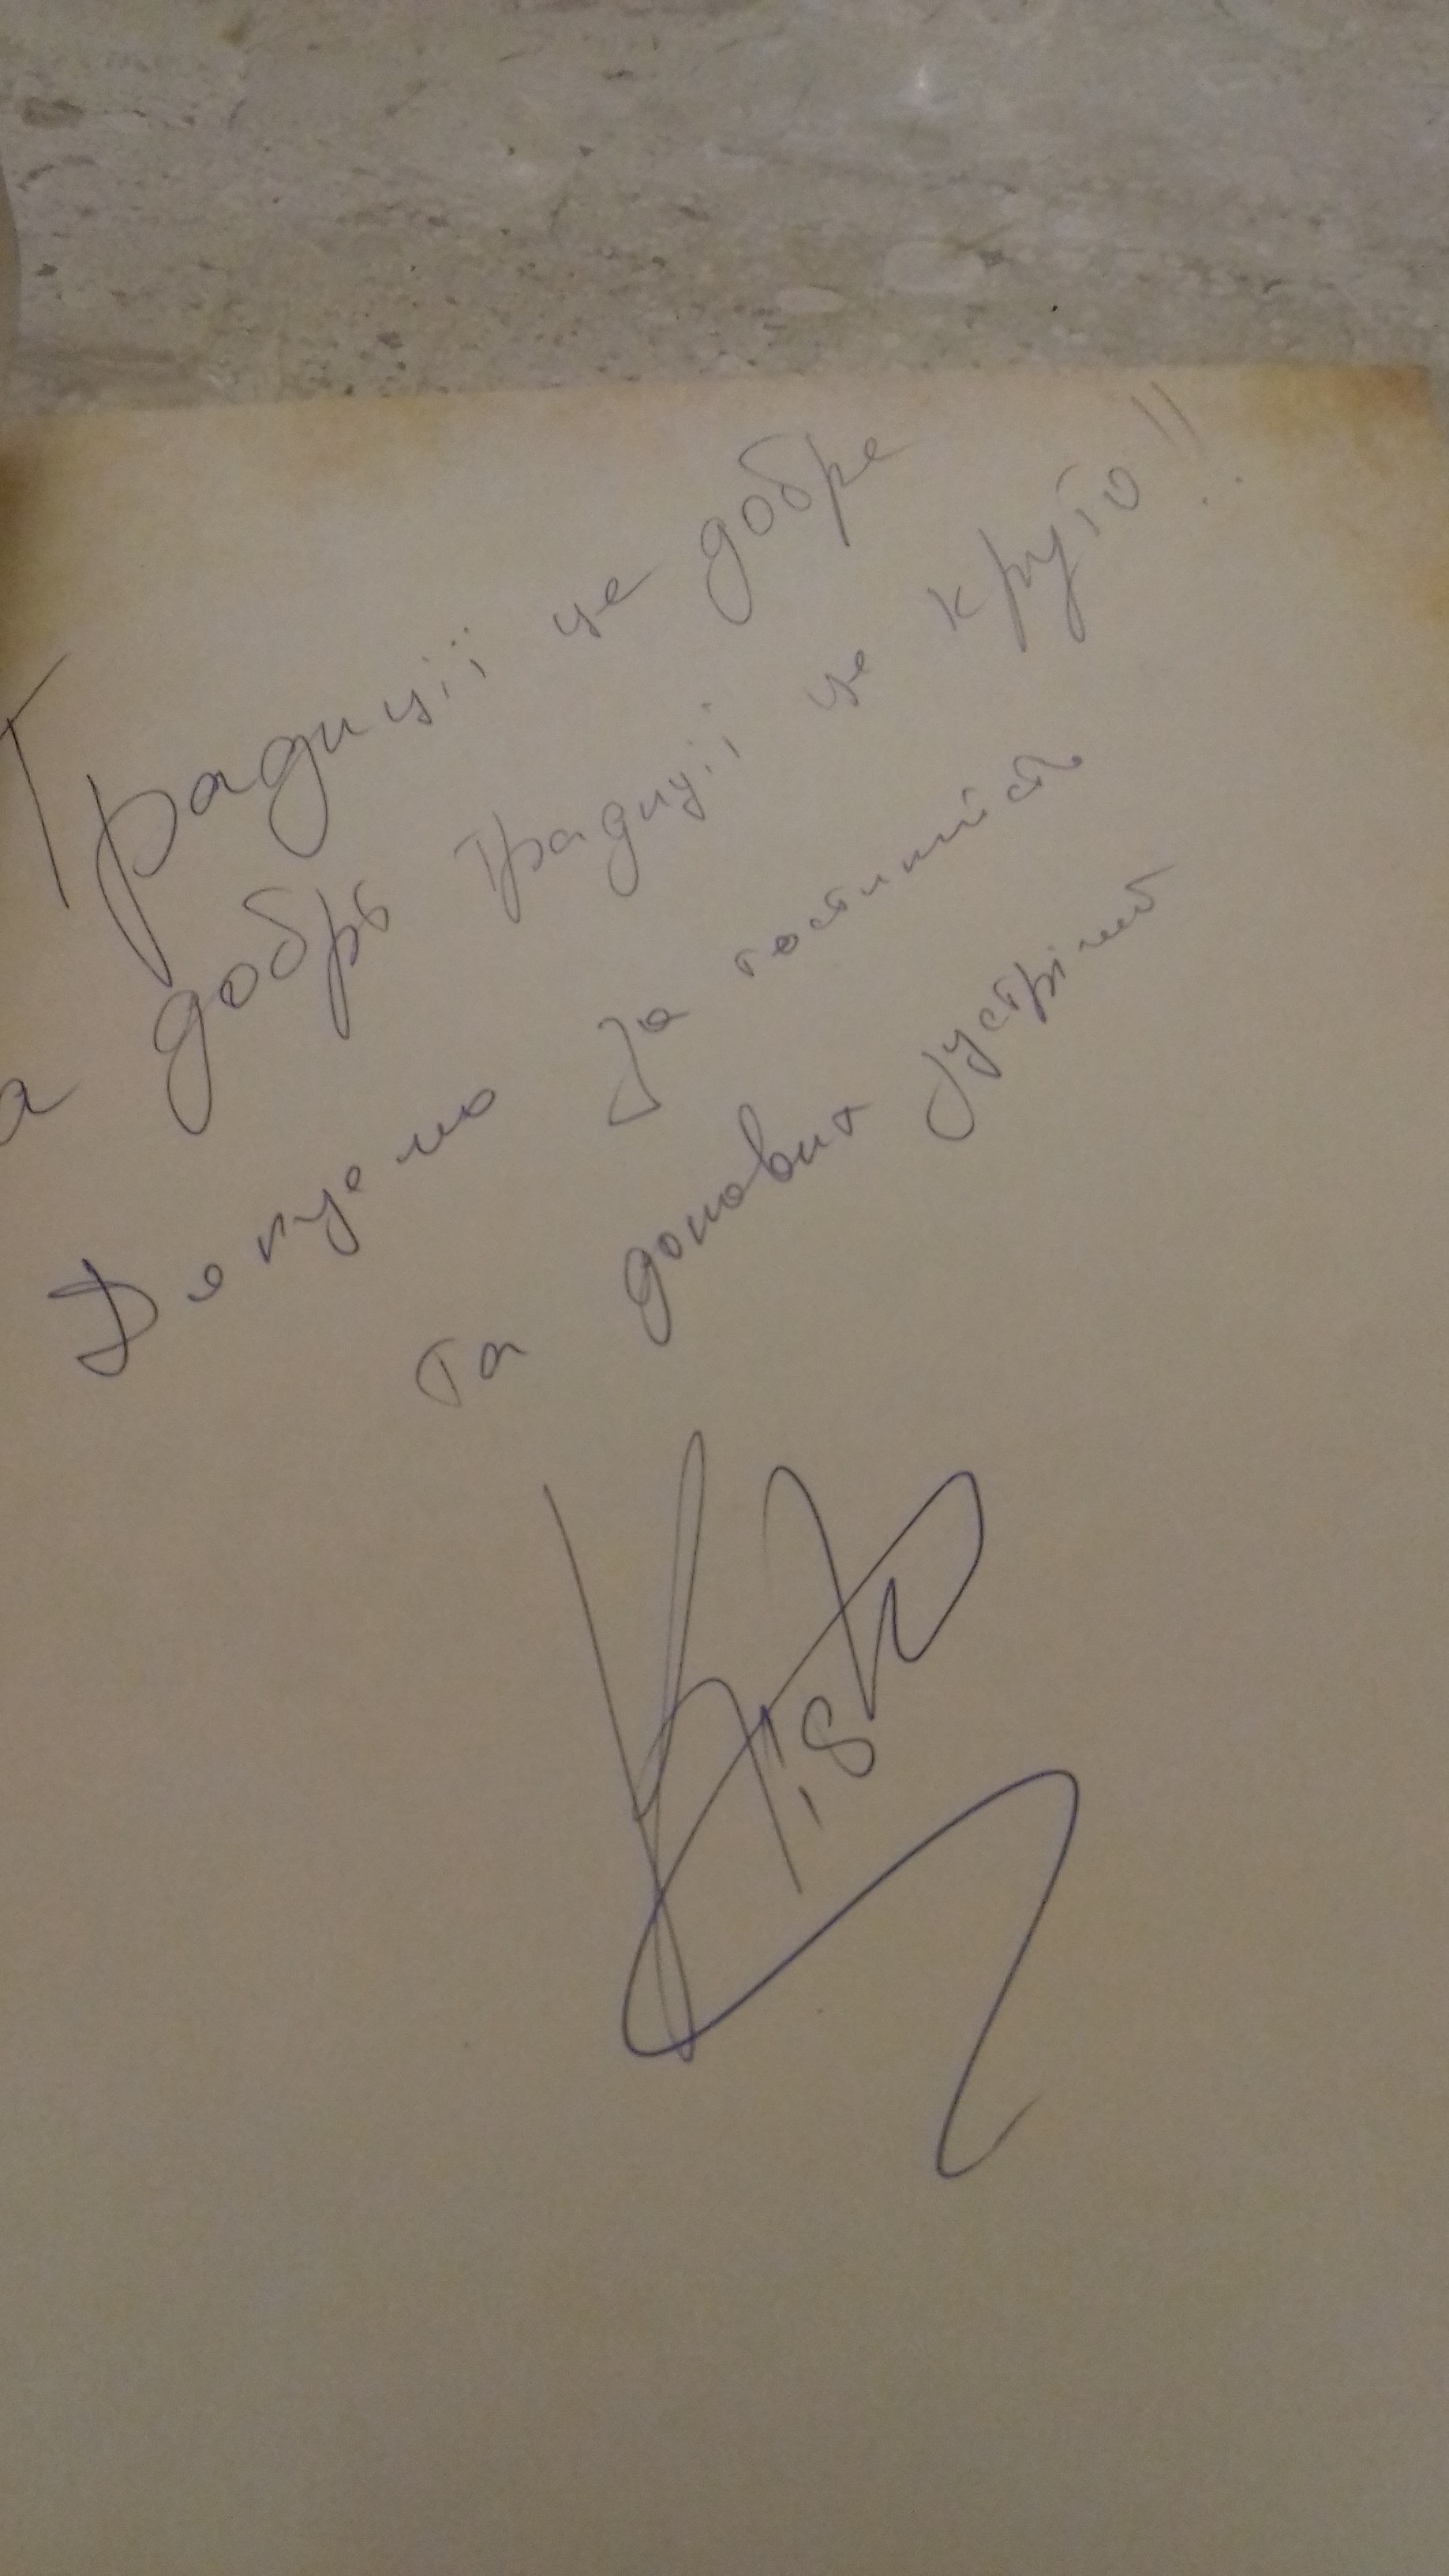 Традиції це добре
а добрі традиції це круто!!
Дякуємо за гостинність
та до нових зустрічей